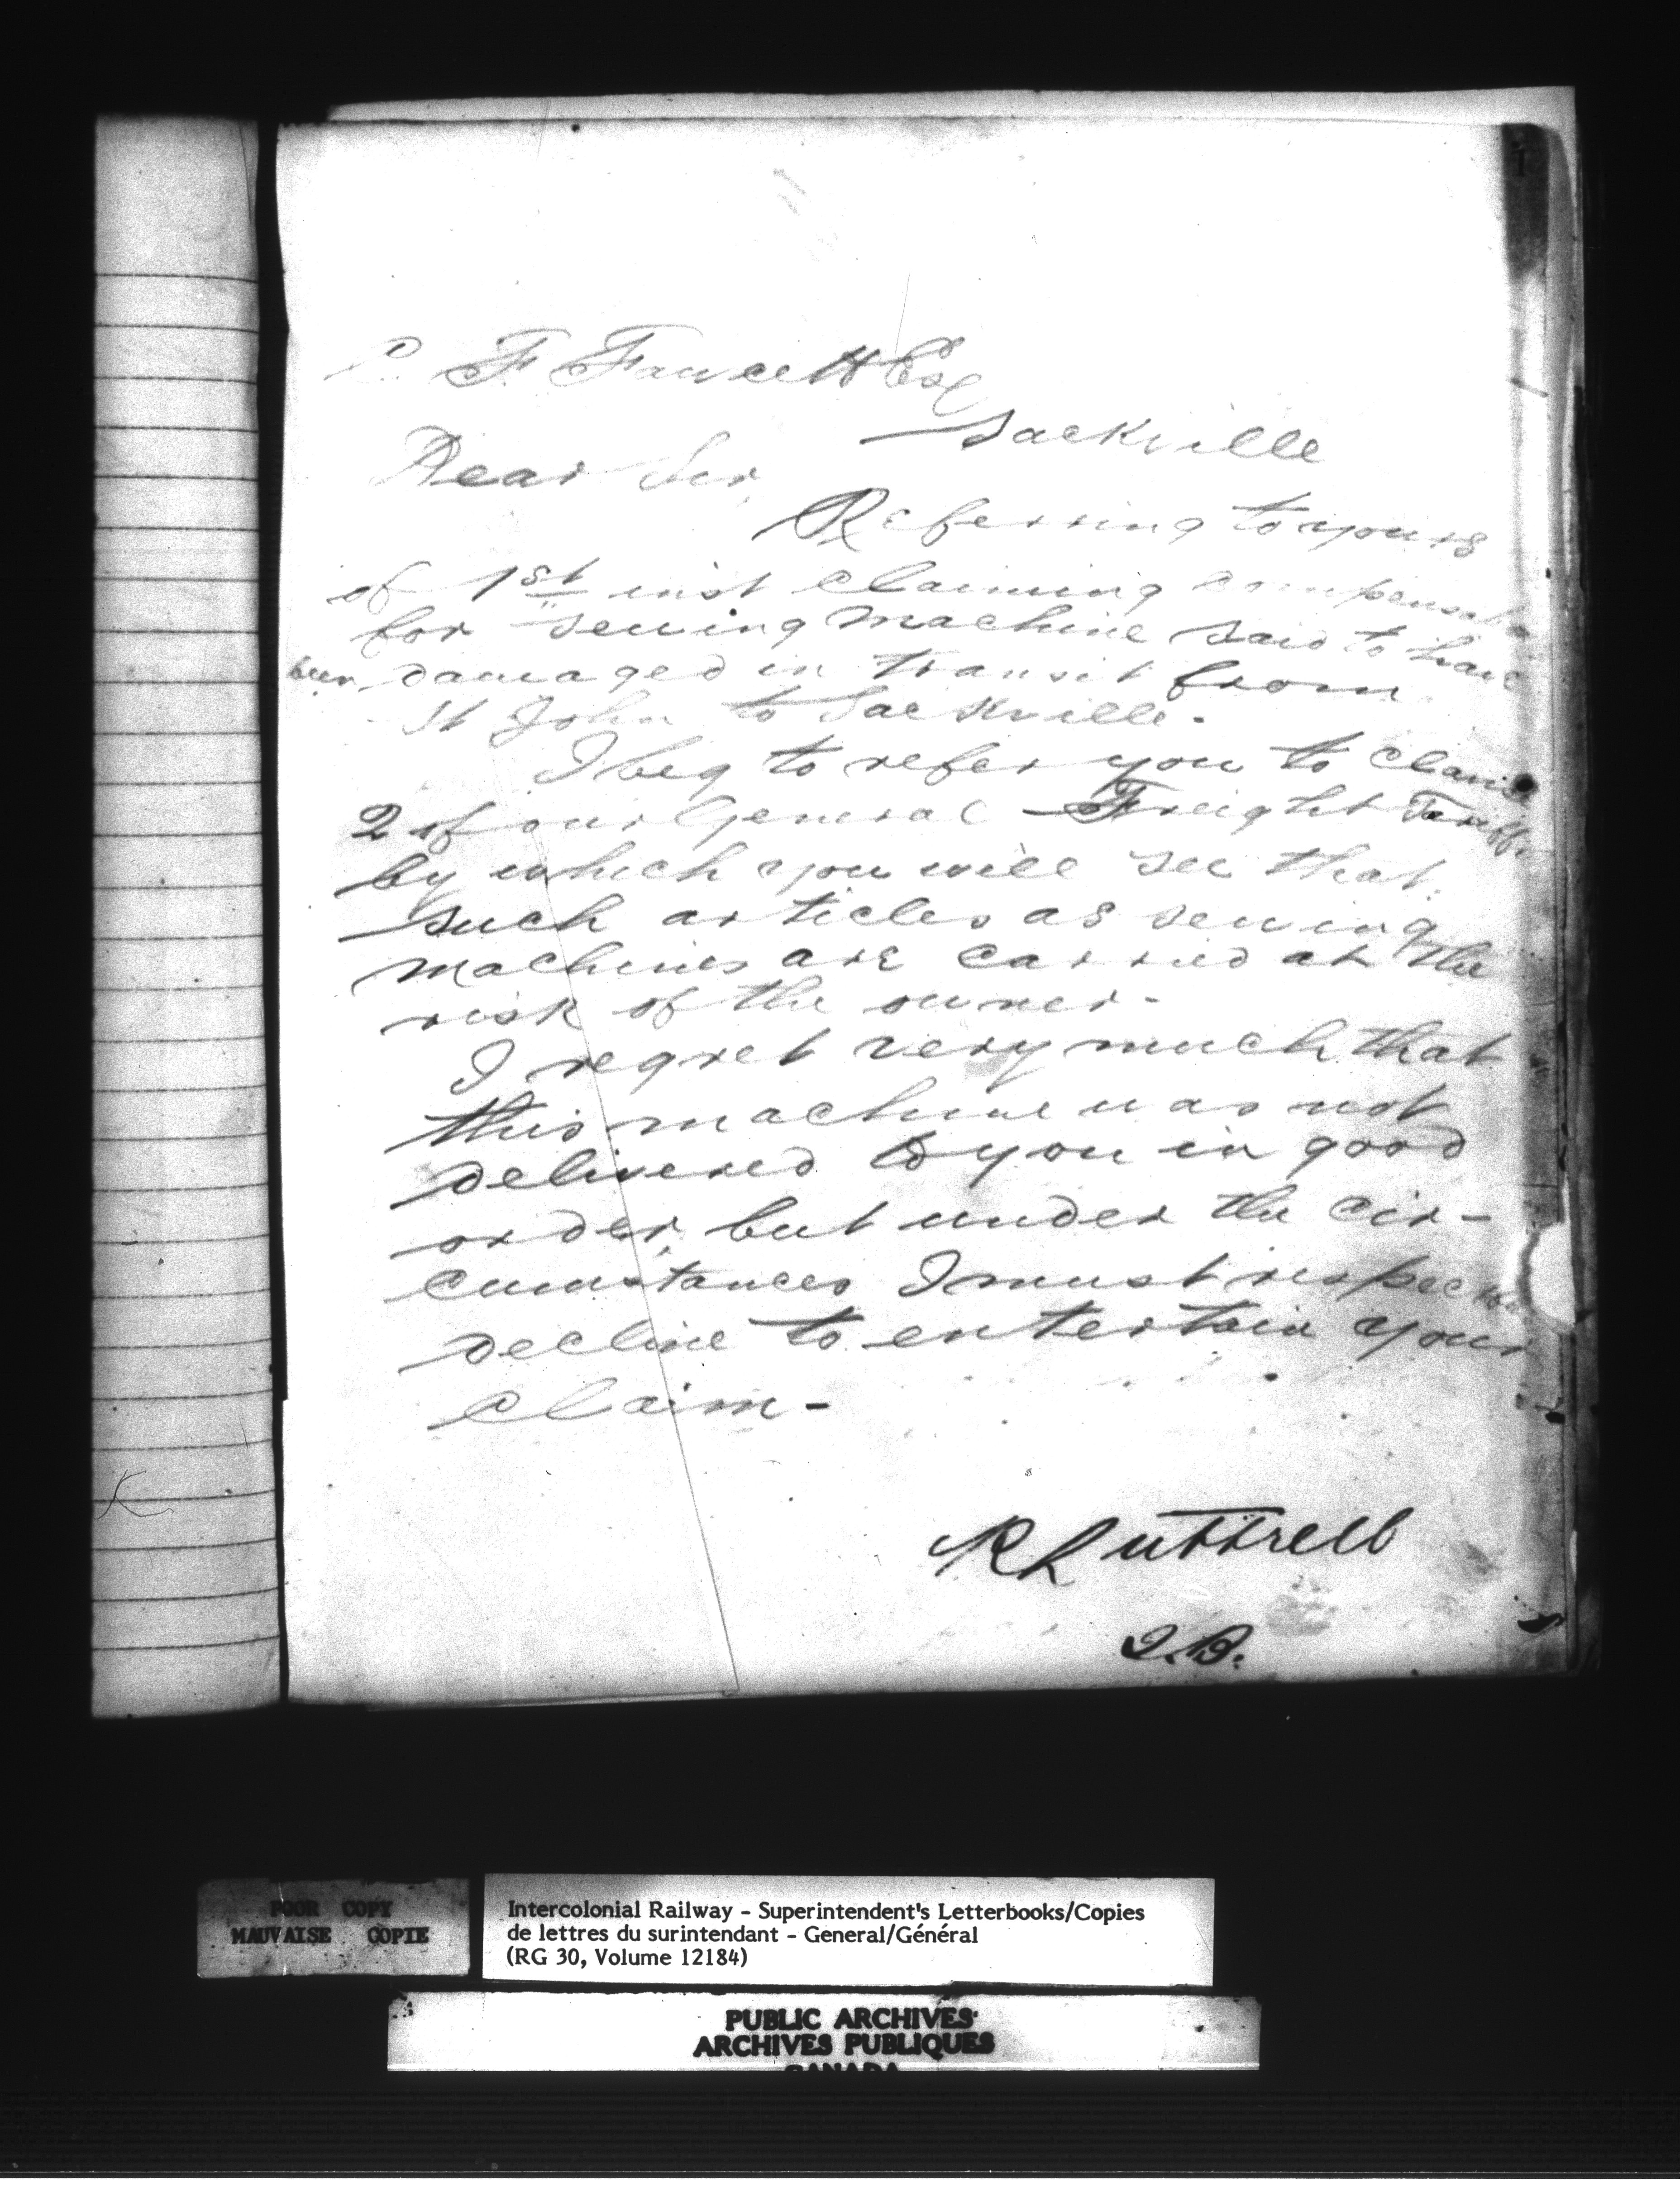 1
C F Fawcett Esq
Sackville
Dear Sir
Referring to yours
of 1st inst claiming compensatn
for sewing machine said to have
been damaged in transit from
St John to Sackville.
I beg to refer you to clause
2 of our General Freight Tariff
by which you will see that
such articles as sewing
machines are carried at the
risk of the owner-
I regret very much that
this machine was not
delivered to you in good
order but under the cir-
cumstances I must
decline to entertain your
claim-
R Luttrell
POOR COPY
MAUVAISE COPIE
Intercolonial Railway - Superintendent's Letterbooks/Copies
de lettres du surintendant - General/Général
(RG 30, Volume 12184)
PUBLIC ARCHIVES
ARCHIVES PUBLIQUES
CANADA